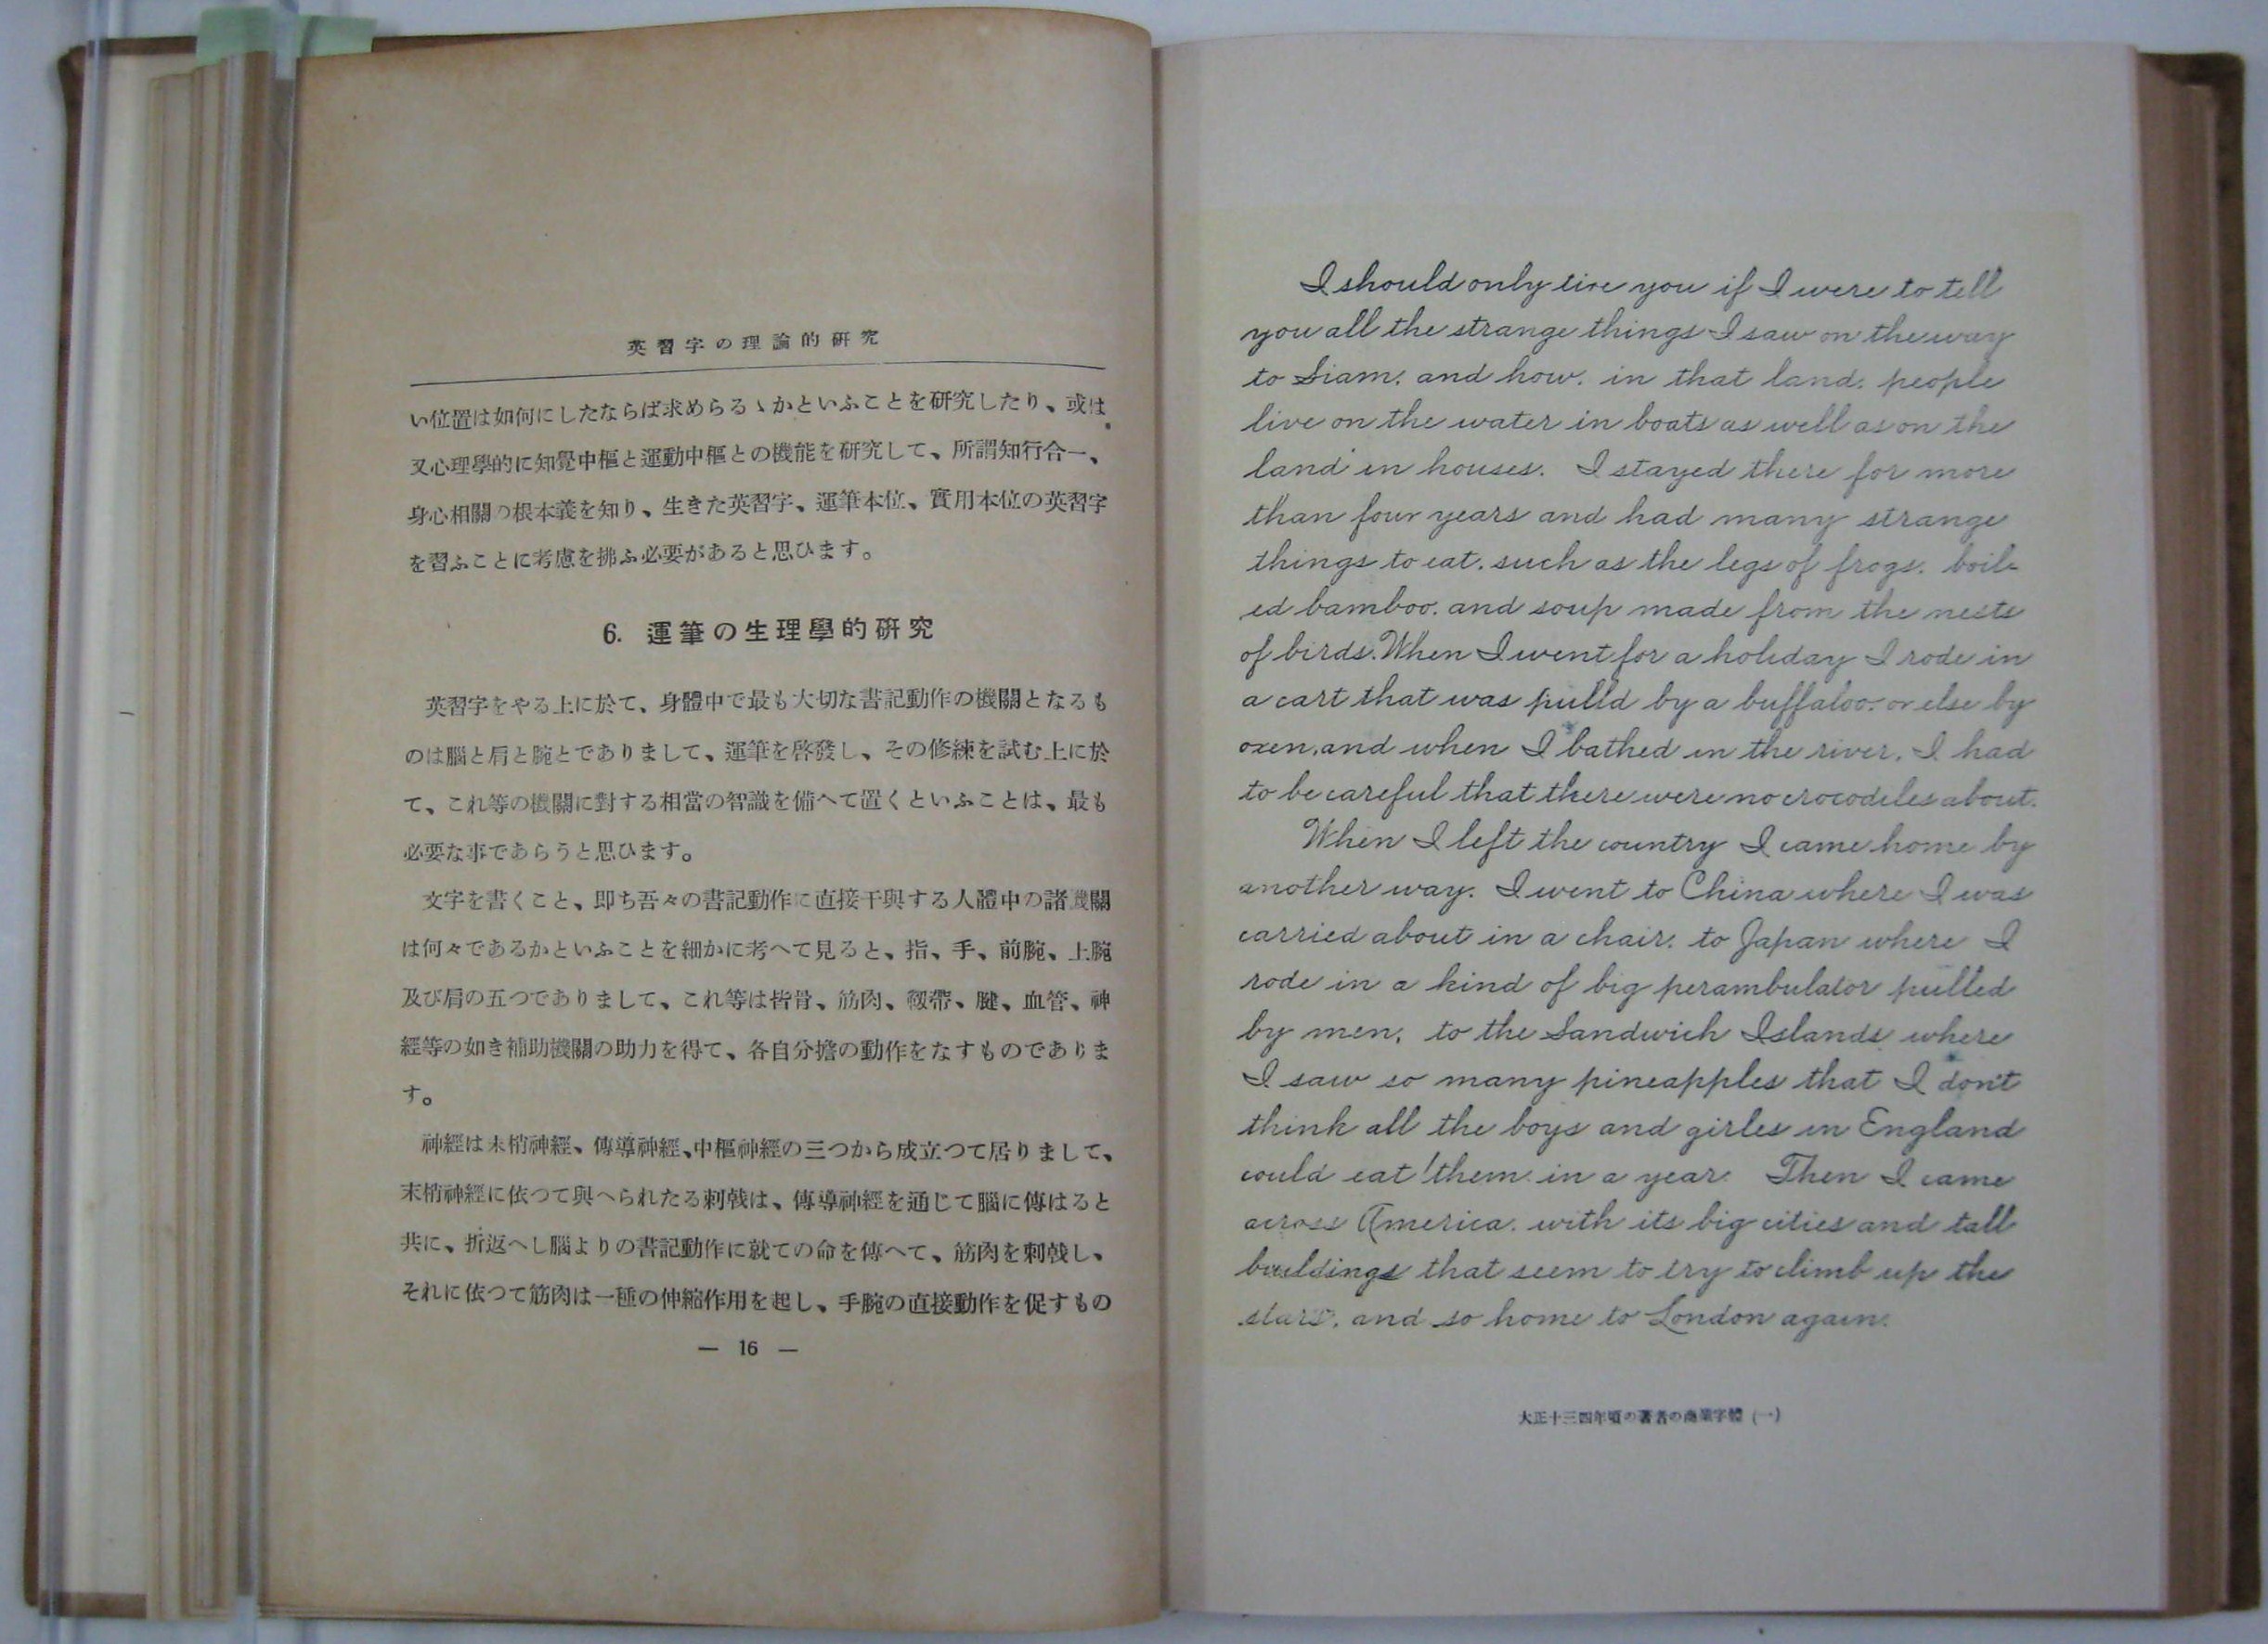 英習字の理論的研究
い位置は如何にしたならば求めらるゝかといふことを研究したり、或は
又心理學的に知覺中樞と運動中樞との機能を研究して、所謂知行合一、
身心相關の根本義を知り、生きた英習字、運筆本位、實用本位の英習字
を習ふことに考慮を拂ふ必要があると思ひます。
6. 運筆の生理學的研究
英習字をやる上に於て、身體中で最も大切な書記動作の機關となるも
のは腦と肩と腕とでありまして、運筆を啓發し、その修練を試む上に於
て、これ等の機關に對する相當の智識を備へて置くといふことは、最も
必要な事であらうと思ひます。
文字を書くこと、即ち吾々の書記動作に直接干與する人體中の諸機關
は何々であるかといふことを細かに考へて見ると、指、手、前腕、上腕
及び肩の五つでありまして、これ等は皆骨、筋肉、靱帶、腱、血管、神
經等の如き補助機關の助力を得て、各自分擔の動作をなすものでありま
す。
神經は末梢神經、傳導神經、中樞神經の三つから成立つて居りまして、
末梢神經に依つて與へられたる刺戟は、傳導神經を通じて腦に傳はると
共に、折返へし腦よりの書記動作に就ての命を傳へて、筋肉を刺戟し、
それに依つて筋肉は一種の伸縮作用を起し、手腕の直接動作を促すもの
— 16 —
I should only tire you if I were to tell
you all the strange things I saw on the way
to Siam, and how, in that land, people
live on the water in boats as well as on the
land in houses. I stayed there for more
than four years and had many strange
things to eat, such as the legs of frogs, boil-
ed bamboo, and soup made from the nests
of birds. When I went for a holiday I rode in
a cart that was pulld by a buffaloo, or else by
oxen, and when I bathed in the river, I had
to be careful that there were no crocodiles about.
When I left the country I came home by
another way. I went to China where I was
carried about in a chair, to Japan where I
rode in a kind of big perambulator pulled
by men, to the Sandwich Islands where
I saw so many pineapples that I don't
think all the boys and girles in England
could eat them in a year. Then I came
across America, with its big cities and tall
buildings that seem to try to climb up the
stars, and so home to London again.
大正十三四年頃の著者の商業字體 (一)